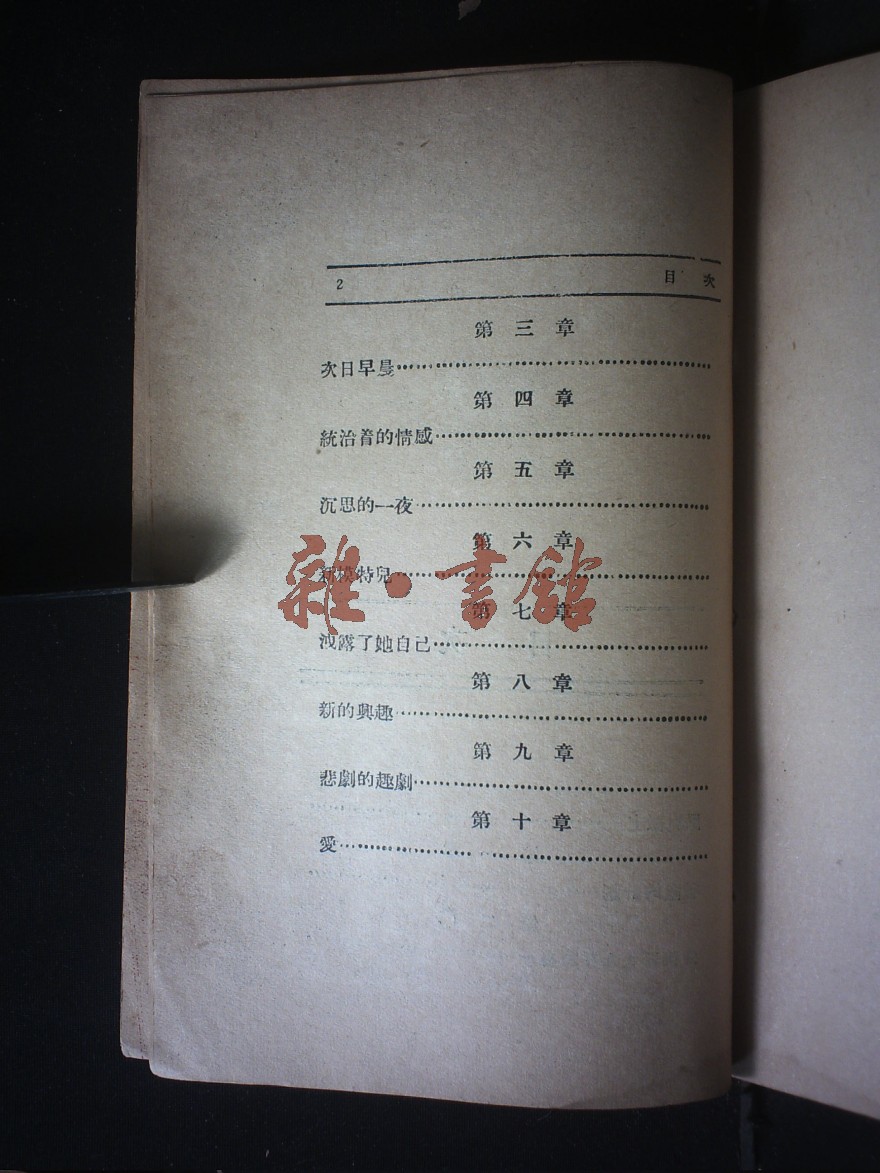 2 目 次
第 三 章
次日早晨………………………………
第 四 章
統治着的情感………………………………
第 五 章
沉思的一夜………………………………
第 六 章
新模特兒………………………………
第 七 章
洩露了她自己………………………………
第 八 章
新的興趣………………………………
第 九 章
悲劇的趣劇………………………………
第 十 章
愛………………………………
雜·書館